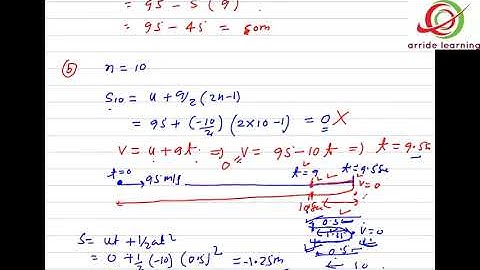 = 95 - 5 (9)
= 95 - 45 = 50m
arride learning
⑤ n = 10
S10 = u + a/2 (2n-1)
= 95 + (-10/2) (2×10-1) = 0 X
V = u + at ⇒ 0 V = 95 - 10t ⇒ t = 9.5s
t=0 t=9 t=9.5sec
95 m/s V=0
10sec
0.5
V=0
S = ut + 1/2 at²
= 0 + 1/2 (-10) (0.5)² = -1.25m